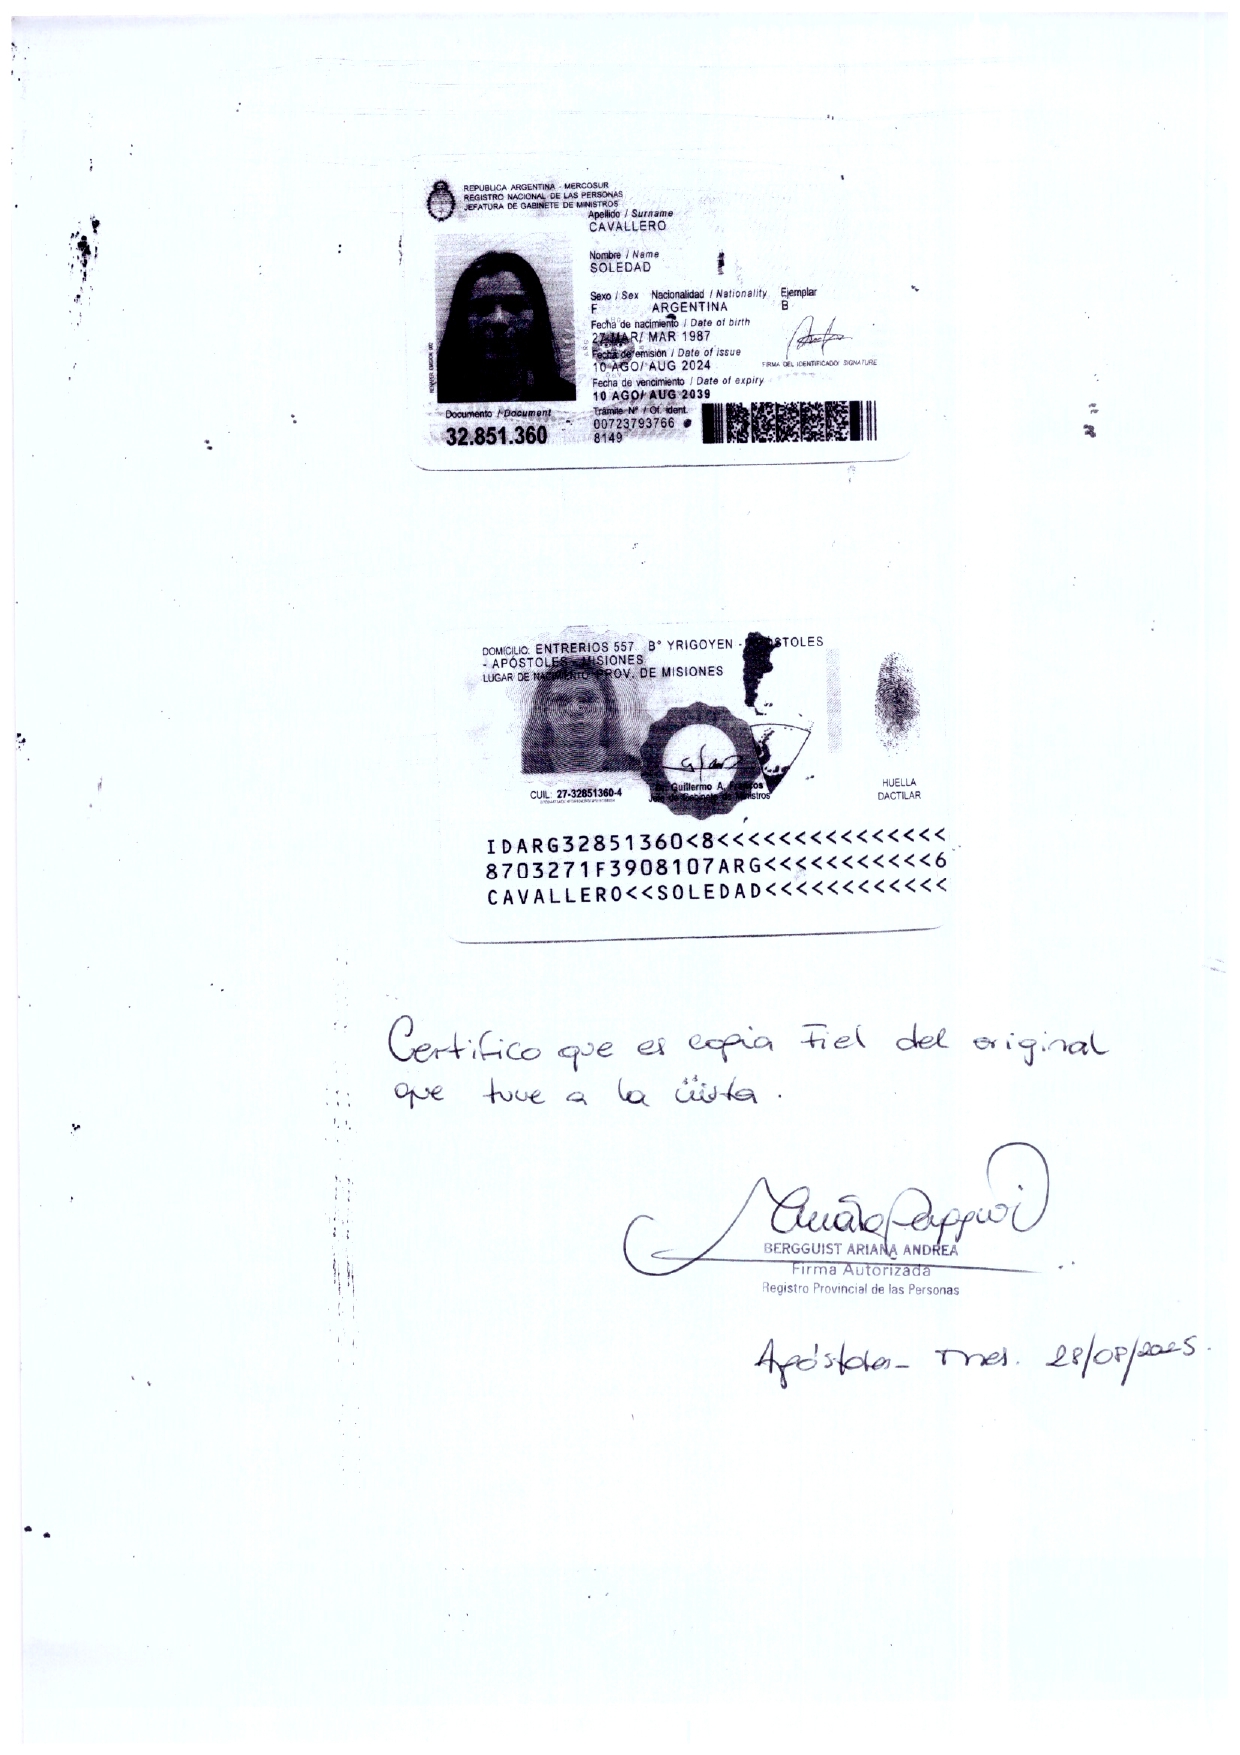 REPUBLICA ARGENTINA - MERCOSUR
REGISTRO NACIONAL DE LAS PERSONAS
JEFATURA DE GABINETE DE MINISTROS
Apellido / Surname
CAVALLERO
Nombre / Name
SOLEDAD
Sexo / Sex Nacionalidad / Nationality Ejemplar
F ARGENTINA B
Fecha de nacimiento / Date of birth
27 MAR/ MAR 1987
Fecha de emisión / Date of issue
10 AGO/ AUG 2024
FIRMA DEL IDENTIFICADO/ SIGNATURE
Fecha de vencimiento / Date of expiry
10 AGO/ AUG 2039
Documento / Document
32.851.360
Trámite Nº / Of. ident.
00723793766
8149
DOMICILIO: ENTRERIOS 557 B° YRIGOYEN - APÓSTOLES
- APÓSTOLES - MISIONES
LUGAR DE NACIMIENTO: PROV. DE MISIONES
CUIL: 27-32851360-4
Guillermo A. Francos
Jefe de Gabinete de Ministros
HUELLA
DACTILAR
IDARG32851360<8<<<<<<<<<<<<<<<
8703271F3908107ARG<<<<<<<<<<<6
CAVALLERO<<SOLEDAD<<<<<<<<<<<<
Certifico que es copia Fiel del original
que tuve a la vista.
BERGGUIST ARIANA ANDREA
Firma Autorizada
Registro Provincial de las Personas
Apóstoles - Mnes. 28/08/2025.